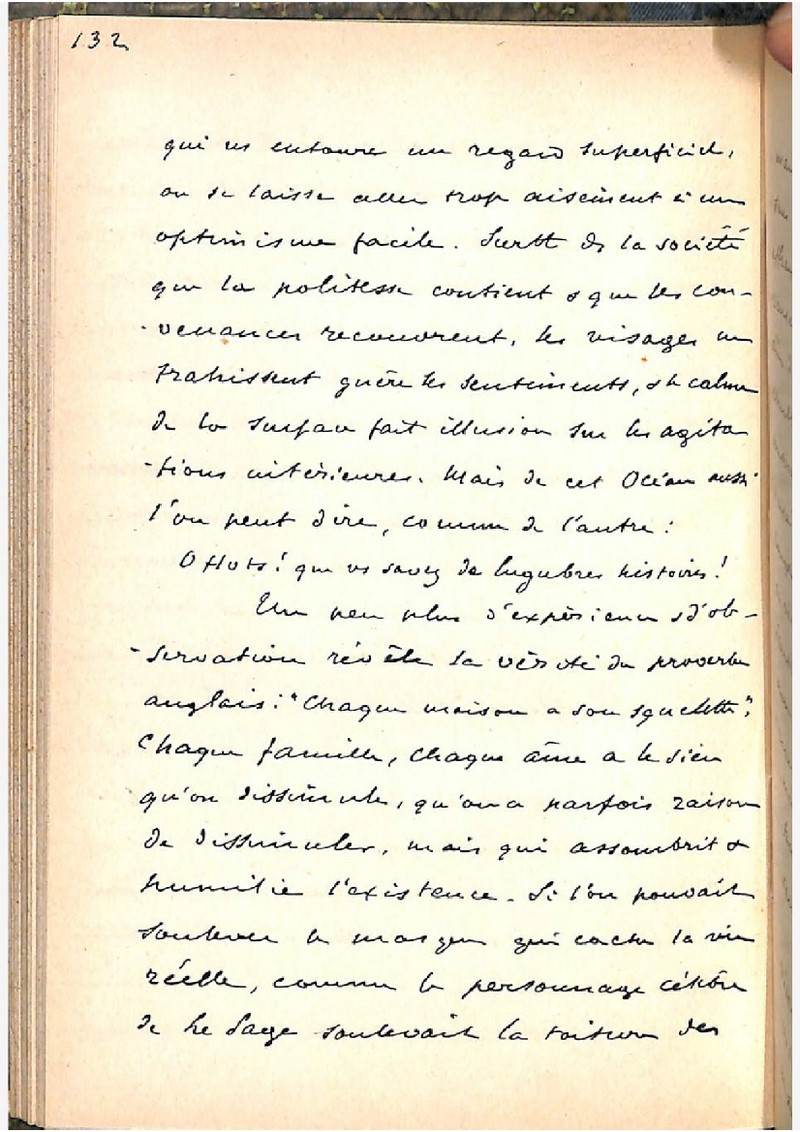 132
qui ns entoure un regard superficiel,
on se laisse aller trop aisément à un
optimisme facile. Surtt ds la société
que la politesse contient & que les con-
-venances recouvrent, les visages ne
trahissent guère les sentiments, & le calme
de la surface fait illusion sur les agita
-tions intérieures. Mais de cet Océan aussi
l'on peut dire, comme de l'autre :
O flots ! que vs savez de lugubres histoires !
Un peu plus d'expérience & d'ob-
-servation révèle la vérité du proverbe
anglais : "Chaque maison a son squelette",
Chaque famille, chaque âme a le sien
qu'on dissimule, qu'on a parfois raison
de dissimuler, mais qui assombrit &
humilie l'existence. Si l'on pouvait
soulever le masque qui cache la vie
réelle, comme le personnage célèbre
de Le Sage soulevait la toiture des